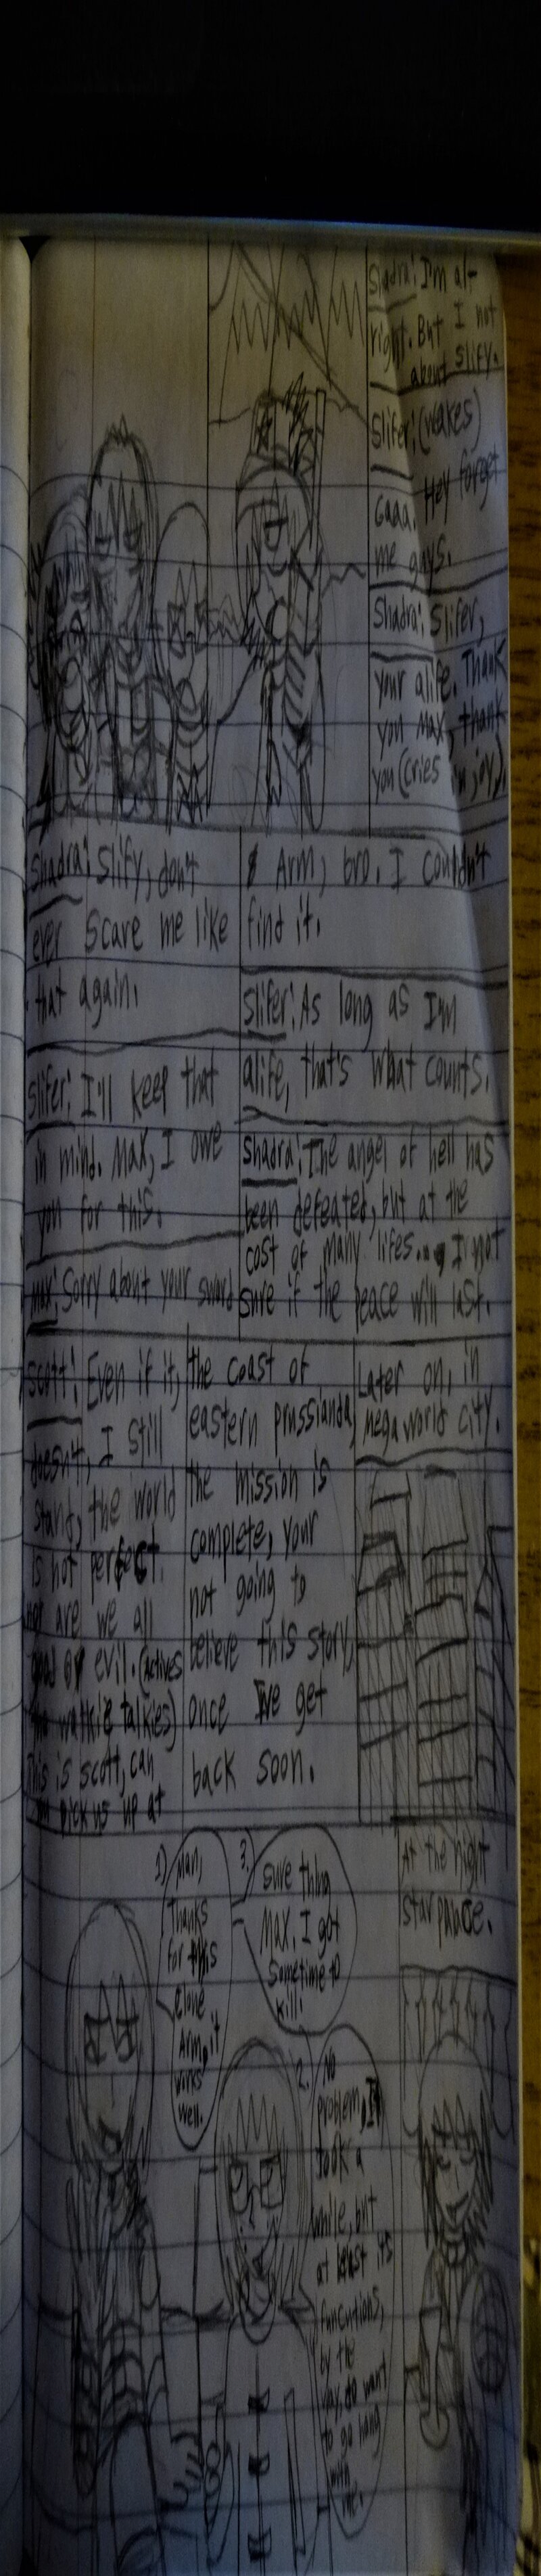 Shadra: I'm al-
right. But I not
about slify.
Slifer: (wakes)
Gaaa. Hey forget
me guys.
Shadra: Slifer,
your alife. Thank
you Max, thank
you (cries in joy)
Shadra: Slify, don't
ever scare me like
that again.
Slifer: I'll keep that
in mind. Max, I owe
you for this.
Max: Sorry about your sword
& Arm, bro. I couldn't
find it.
Slifer: As long as I'm
alife, that's what counts.
Shadra: The angel of hell has
been defeated, but at the
cost of many lifes... I not
sure if the peace will last.
Scott: Even if it,
doesn't, I still
stand, the world
is not perfect.
nor are we all
good or evil. (actives
walkie talkies)
This is scott, can
pick us up at
the coast of
eastern prusslanda,
the mission is
complete, your
not going to
believe this story,
once I've get
back soon.
Later on, in
megaworld city.
1) Man,
Thanks
for this
Clone
Arm, it
works
well.
3. sure thing
Max, I got
sometime to
kill.
2. No
problem, It
took a
while, but
at least it's
funcutions,
by the
way, do want
to go hang
with
me.
At the night
star pause.